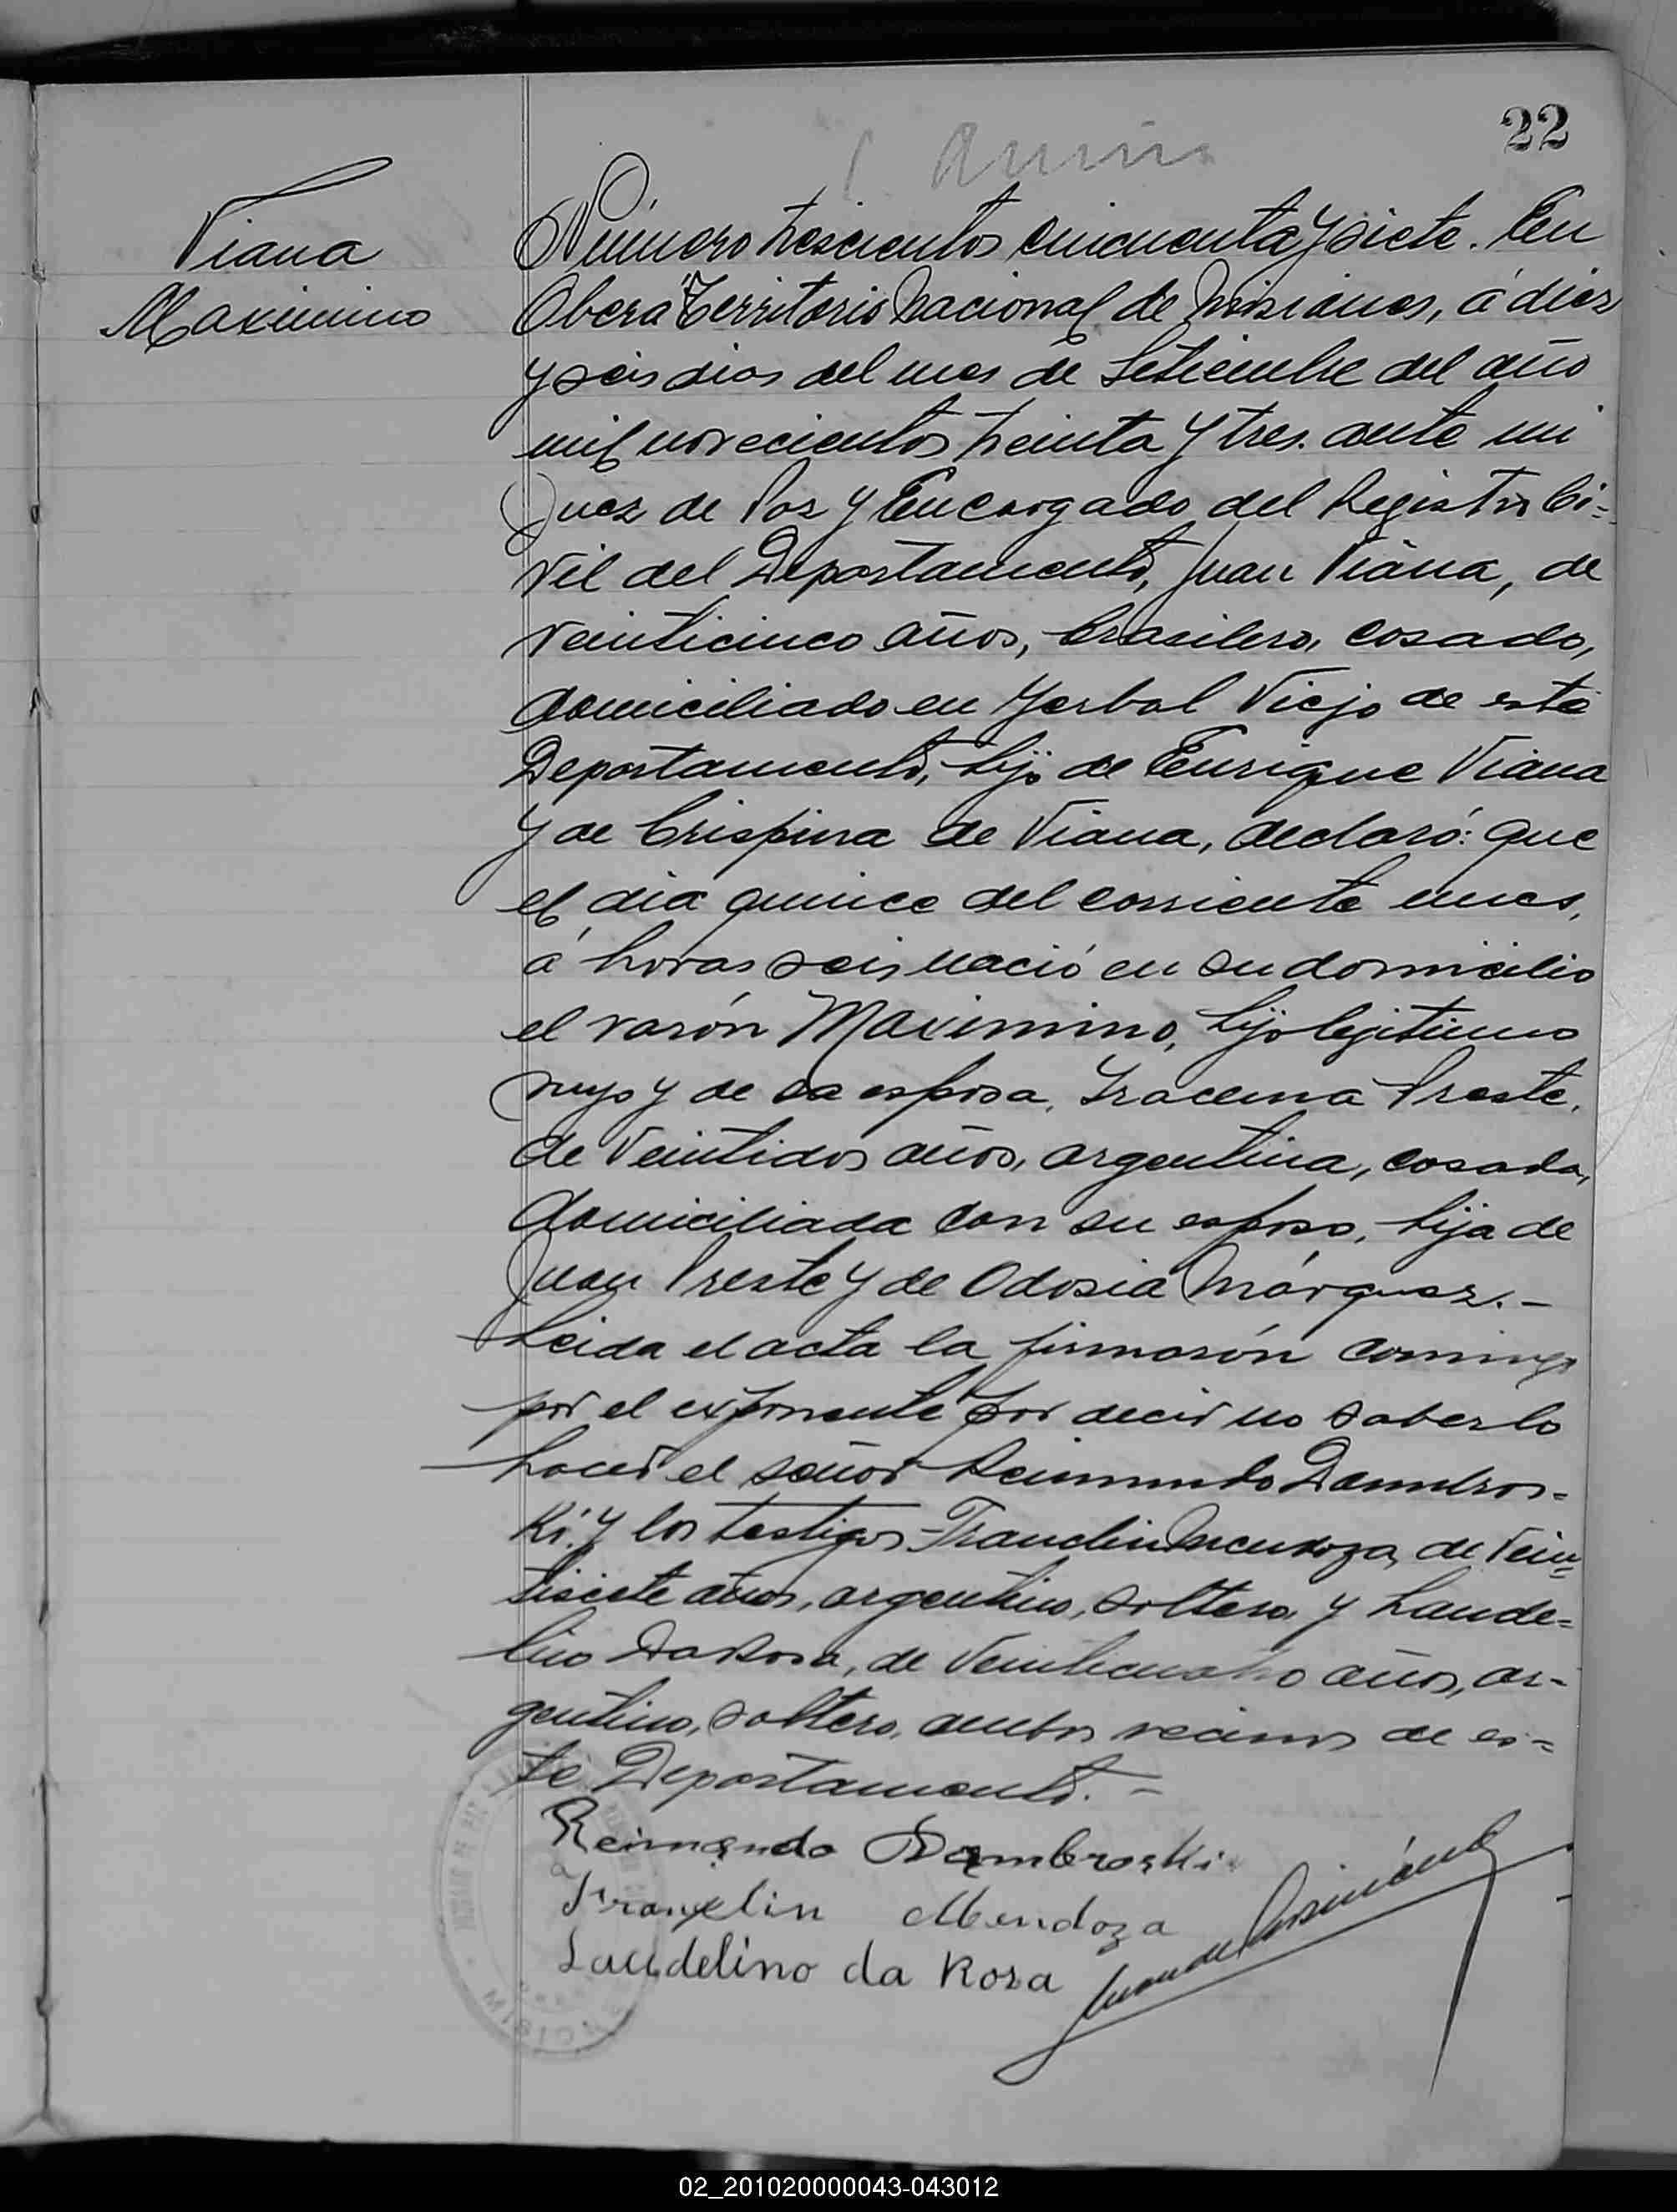 22
Viana
Maximino
Número trescientos cincuenta y siete. En
Oberá Territorio Nacional de Misiones, á diez
y seis dias del mes de Setiembre del año
mil novecientos treinta y tres. ante mi
Juez de Paz y Encargado del Registro Ci=
vil del Departamento, Juan Viana, de
veinticinco años, brasilero, casado,
domiciliado en Yerbal Viejo de este
Departamento, hijo de Enrique Viana
y de Crispina de Viana, declaró: que
el dia quince del corriente mes,
á horas seis nació en su domicilio
el varón Maximino, hijo legitimo
suyo y de sa esposa, Iracema Preste,
de Veintidos años, argentina, casada,
domiciliada con su esposo, hija de
Juan Preste y de Odosia Márquez.-
Leida el acta la firmarón conmigo
por el exponente por decir no saberlo
hacer el señor Reimundo Dambros-
ki. y los testigos Franclin Mendoza, de Vein=
tisiete años, argentino, soltero, y Laude=
lino Da Rosa, de Veinticuatro años, ar-
gentino, soltero, ambos vecinos de es=
te Departamento. -
Reimundo Dambroski
Franklin Mendoza
Laudelino da Rosa
02_201020000043-043012